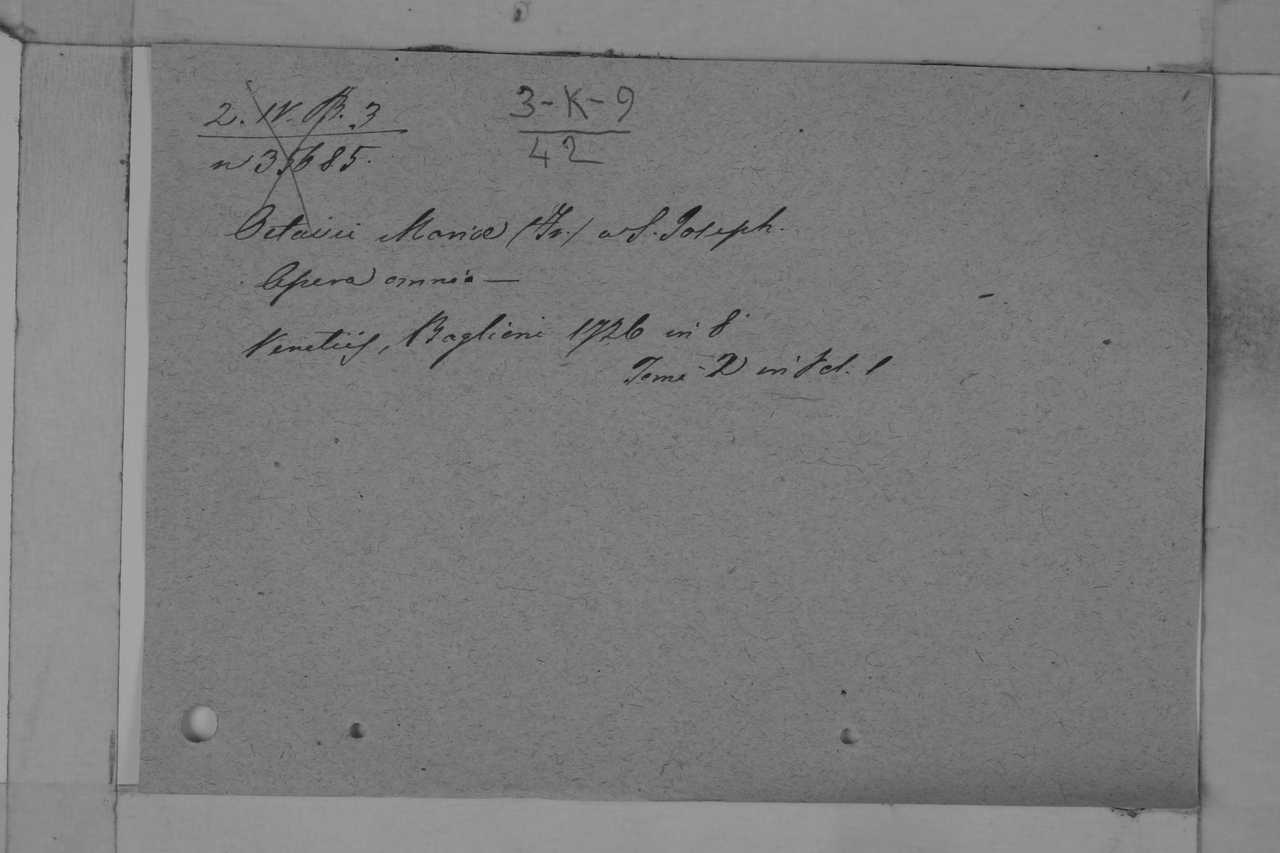 2. IV. B. 3
n 35685.
3-K-9
42
Octavii Mariæ (Fr.) a S. Joseph.
Opera omnia —
Venetiis, Baglioni 1726 in 8°
Tomi 2 in Vol. 1